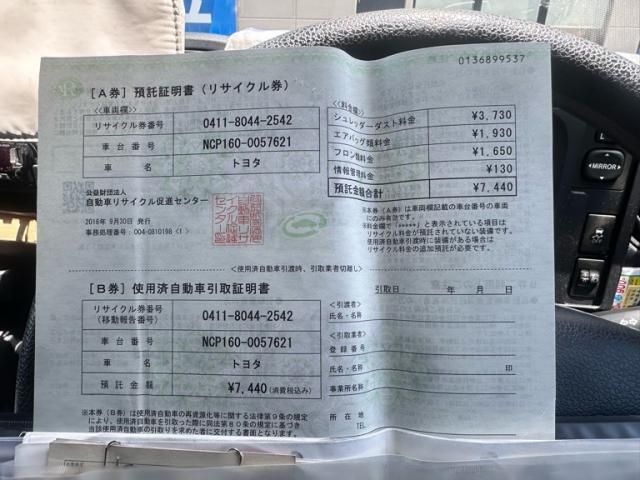 0136899537
［A券］預託証明書（リサイクル券）
<<車両欄>>
リサイクル券番号 0411-8044-2542
車台番号 NCP160-0057621
車名 トヨタ
公益財団法人
自動車リサイクル促進センター
2016年 9月30日 発行
事務処理番号：004-0810198（-1）
<<料金欄>>
シュレッダーダスト料金 ¥3,730
エアバッグ類料金 ¥1,930
フロン類料金 ¥1,650
情報管理料金 ¥130
預託金額合計 ¥7,440
※本券（A券）は車両欄記載の車台番号の車両
にのみ有効です。
※料金欄で「*****」と表示されている項目は
リサイクル料金が預託されていない装備です。
使用済自動車引渡時に装備がある場合は
リサイクル料金の追加預託が必要です。
<使用済自動車引渡時、引取業者切離し>
［B券］使用済自動車引取証明書
リサイクル券番号
（移動報告番号） 0411-8044-2542
車台番号 NCP160-0057621
車名 トヨタ
預託金額 ¥7,440（消費税込み）
※本券（B券）は使用済自動車の再資源化等に関する法律第9条の規定
により、使用済自動車を引取った際に同法第80条の規定に基づき
当該使用済自動車の引取りを求めた者に交付する書面となります。
引取日 年 月 日
<引渡者>
氏名・名称
<引取業者>
登録番号
氏名・名称 印
事業所名称
所在地
TEL
MIRROR